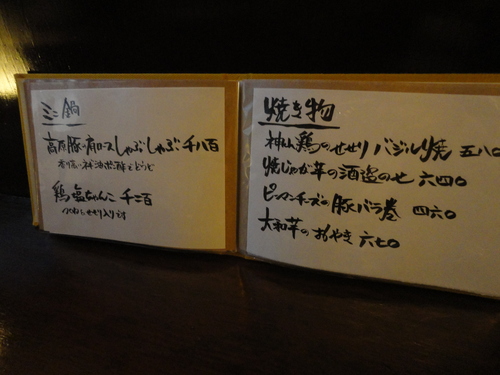 ミニ鍋
高原豚・肩ロースしゃぶしゃぶ 千八百
鶏塩ちゃんこ 千二百
焼き物
鶏のせせり バジル焼 五八〇
焼じゃが芋の酒盗のせ 六四〇
ピーマンチーズの豚バラ巻 四六〇
大和芋のおやき 六七〇